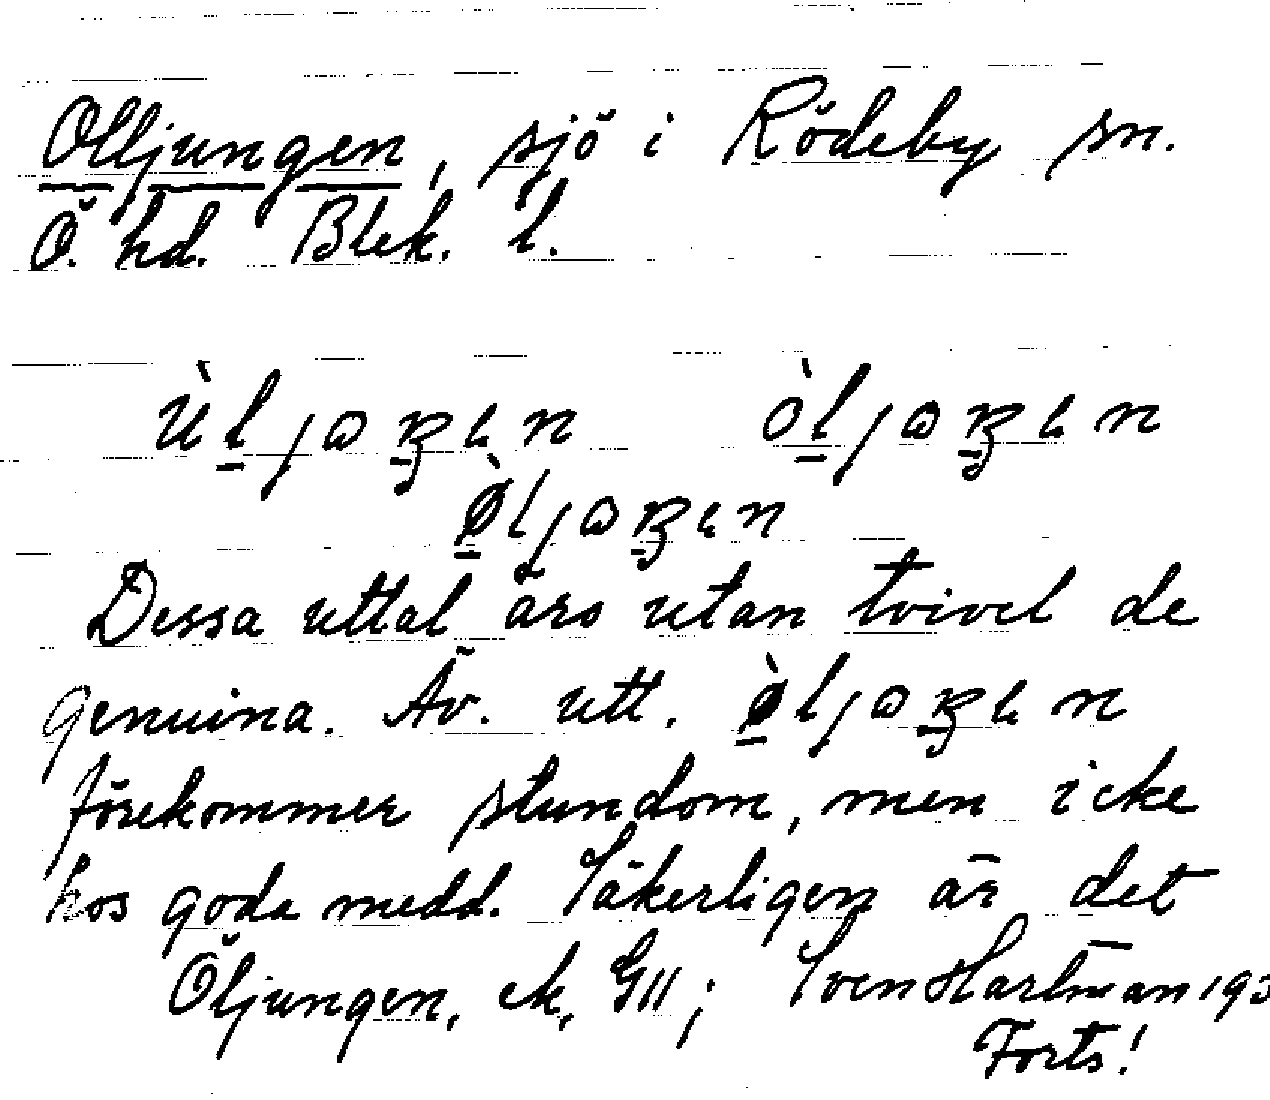 Olljungen, sjö i Rödeby sn.
Ö. hd. Blek. l.
Dessa uttal äro utan tvivel de
genuina. Äv. utt.
förekommer stundom, men icke
hos goda medd. Säkerligen är det
Öljungen, ek, GII; Sven Hartman 193
Forts!